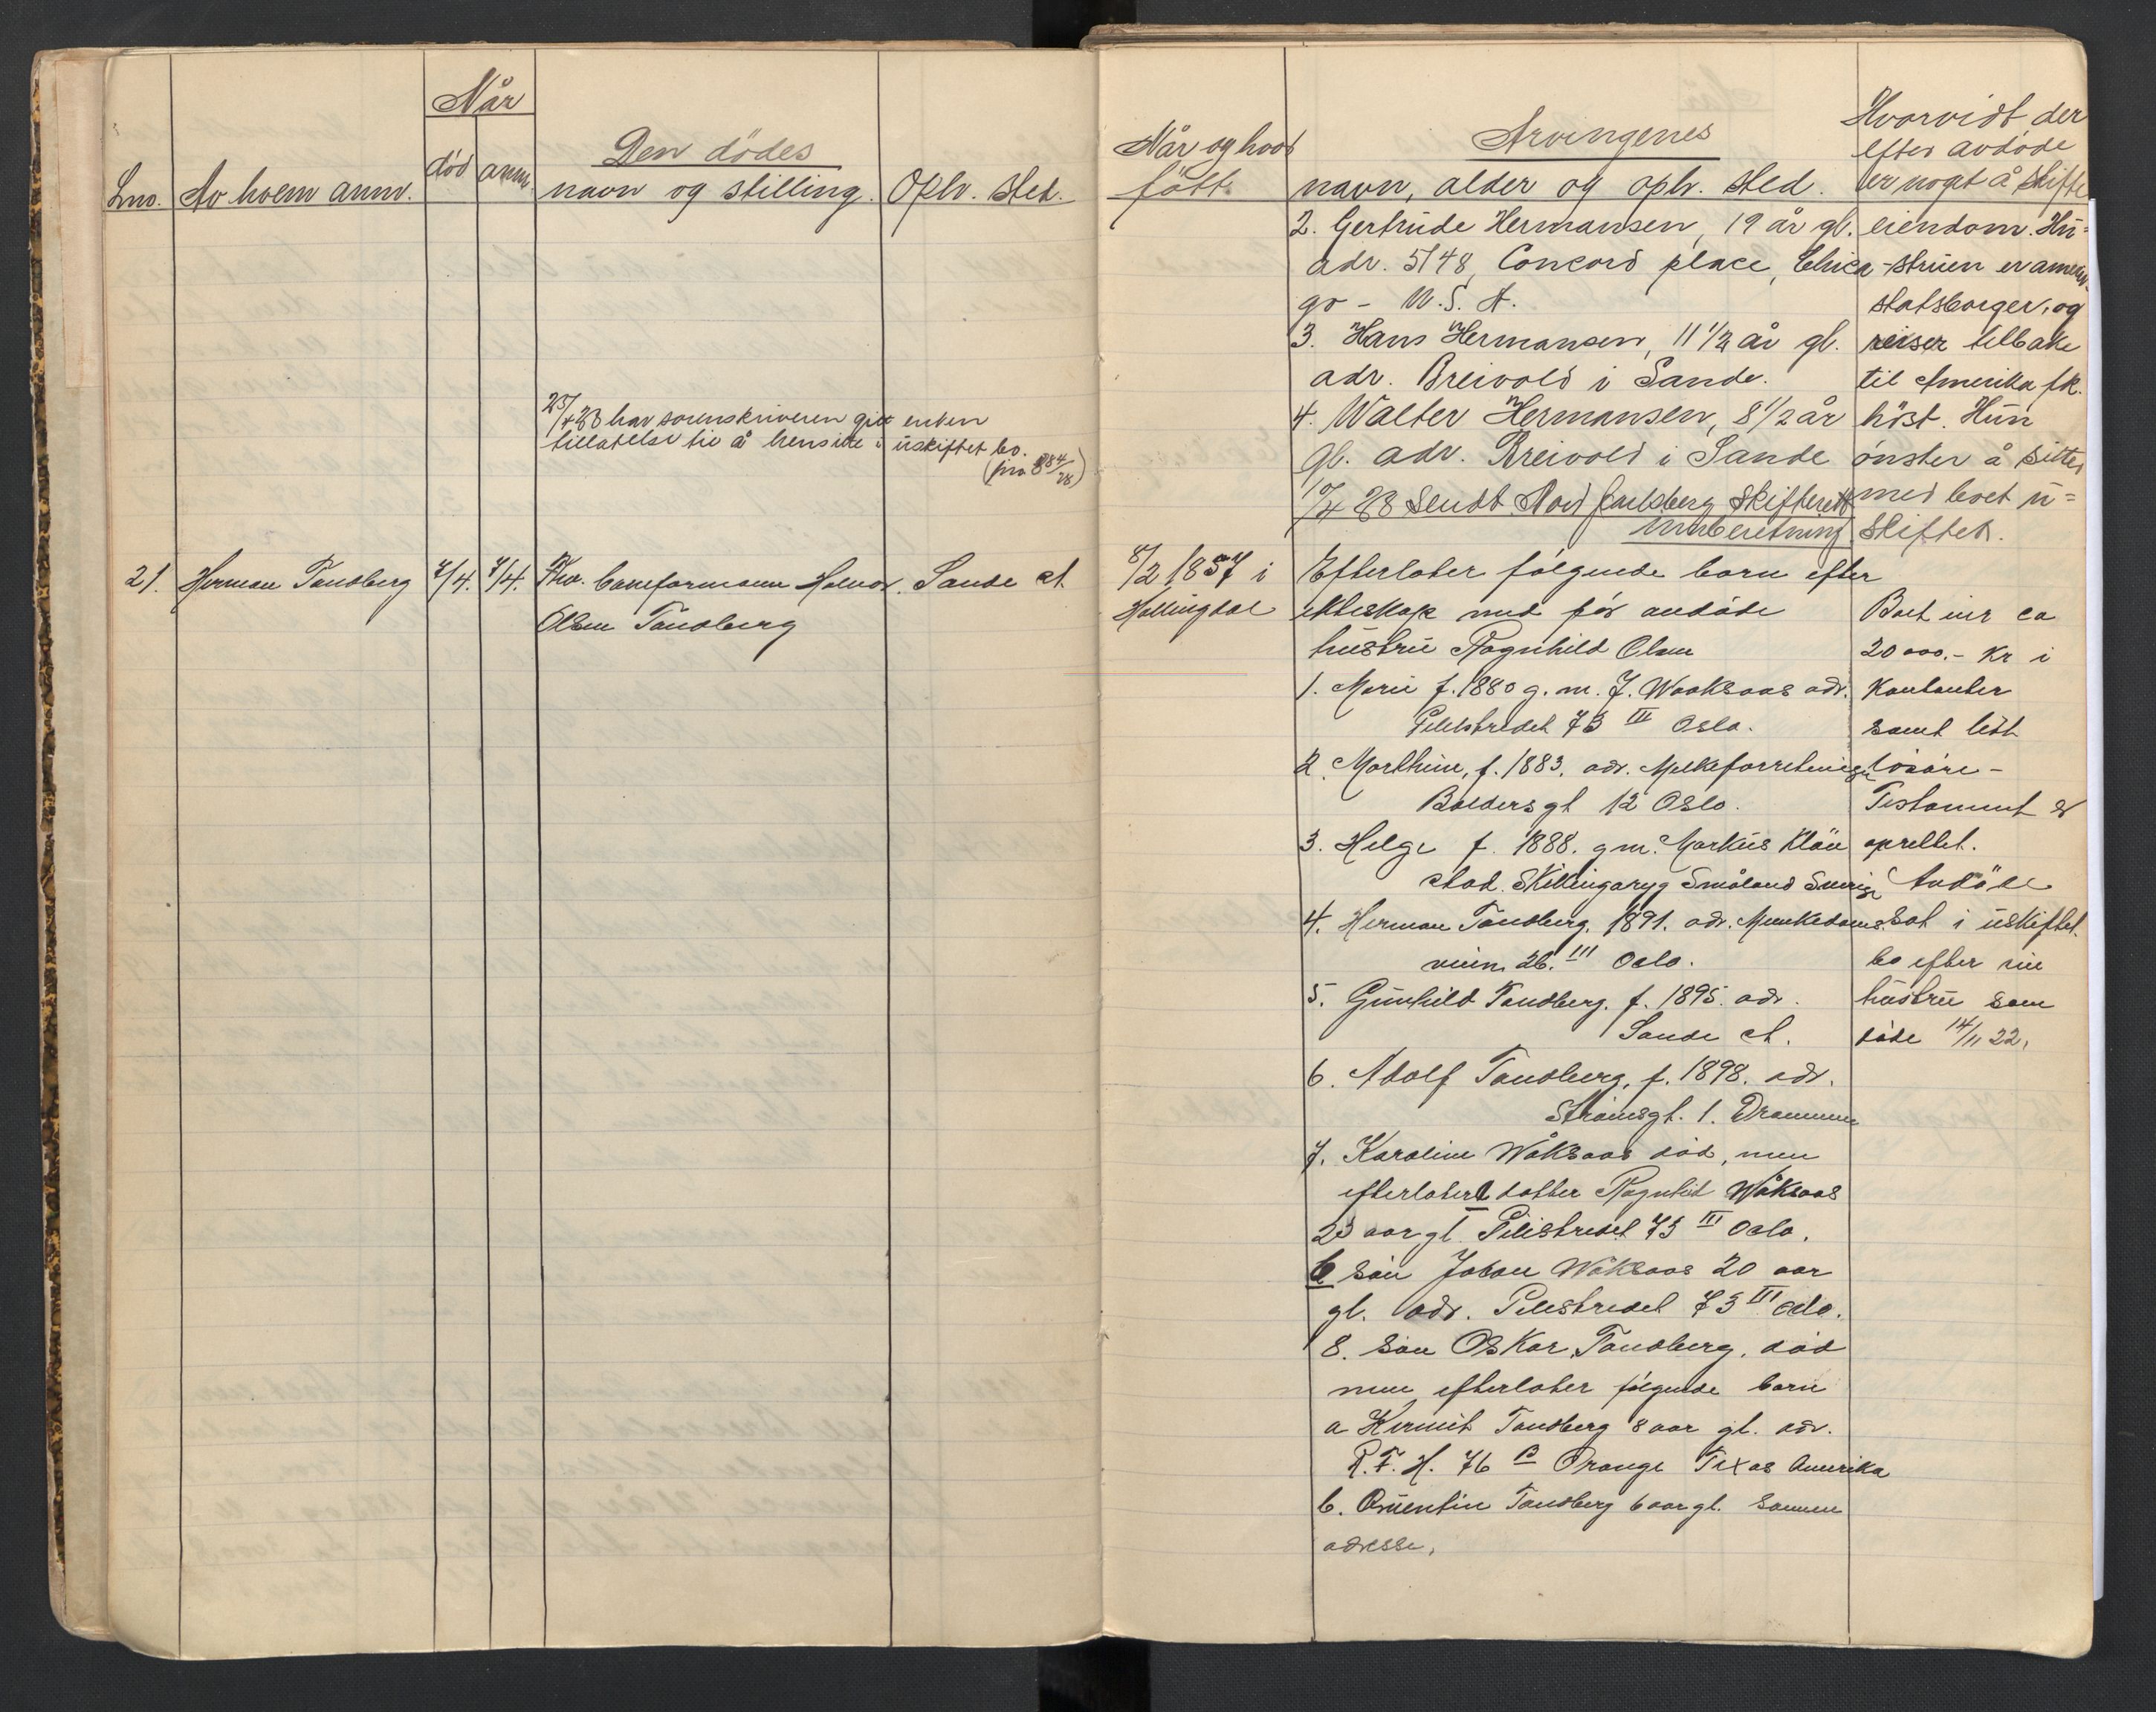 Når
Lno. Av hvem anm. død anm. Den dødes
navn og stilling. Oplv. sted.
25/4 28 har sorenskriveren gitt enken
tillatelse til å hensitte i uskiftet bo.
(jno 884/28)
21. Herman Tandberg 7/4. 7/4. Fhv. baneformann Halvor Sande st.
Olsen Tandberg
Når og hvor
født.
Arvingenes
navn, alder og oplv. sted.
Hvorvidt der
efter avdøde
er noget å skifte
2. Gertrude Hermansen, 19 år gl.
adr. 5748, Concord place, Chica
go - U.S.A.
3. Hans Hermansen, 11 1/2 år gl.
adr. Breivold i Sande.
4. Walter Hermansen, 8 1/2 år
gl. adr. Breivold i Sande
17/4 28 sendt Nord Jarlsberg Skifterett
innberetning
eiendom. Hu=
-struen er amerik.
statsborger, og
reiser tilbake
til Amerika fk.
høst. Hun
ønsker å sitte
med boet u=
skiftet.
8/2 1857 i
Hallingdal
Efterlater følgende barn efter
ekteskap med før avdøde
hustru Ragnhild Olsen
1. Marie f. 1880 g. m. J. Waaksaas adr.
Pilestredet 73 III Oslo.
2. Marthine, f. 1883. adr. Melkeforretningen
Baldersgt 12 Oslo.
3. Helge f. 1888. gm. Markus Kläu
stad. Skillingaryg Småland Sverige
4. Herman Tandberg. 1891. adr. Munkedams
veien 26. III Oslo.
5. Gunhild Tandberg. f. 1895. adr.
Sande st.
6. Adolf Tandberg, f. 1898. adr.
Strømsgt. 1. Drammen
7. Karoline Wåksaas død, men
efterlater a datter Ragnhild Wåksaas
23 aar gl. Pilestredet 73 III Oslo.
b søn Johan Wåksaas 20 aar
gl. adr. Pilestredet 73 III Oslo.
8. søn Oskar Tandberg, død
men efterlater følgende barn
a Kermit Tandberg 8 aar gl. adr.
R. F. H. 76 B Orange Texas Amerika
b. Quentin Tandberg 6 aar gl. samme
adresse.
Boet eier ca
20000.- Kr i
Kontanter
samt litt
løsøre -
Testament er
oprettet.
Avdøde
sat i uskiftet
bo efter sin
hustru som
døde 14/11 22.